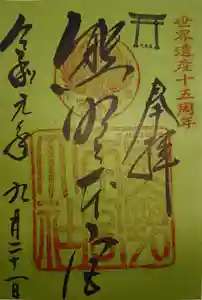 世界遺産十五周年
奉拝
熊野本宮
令和元年 九月二十一日